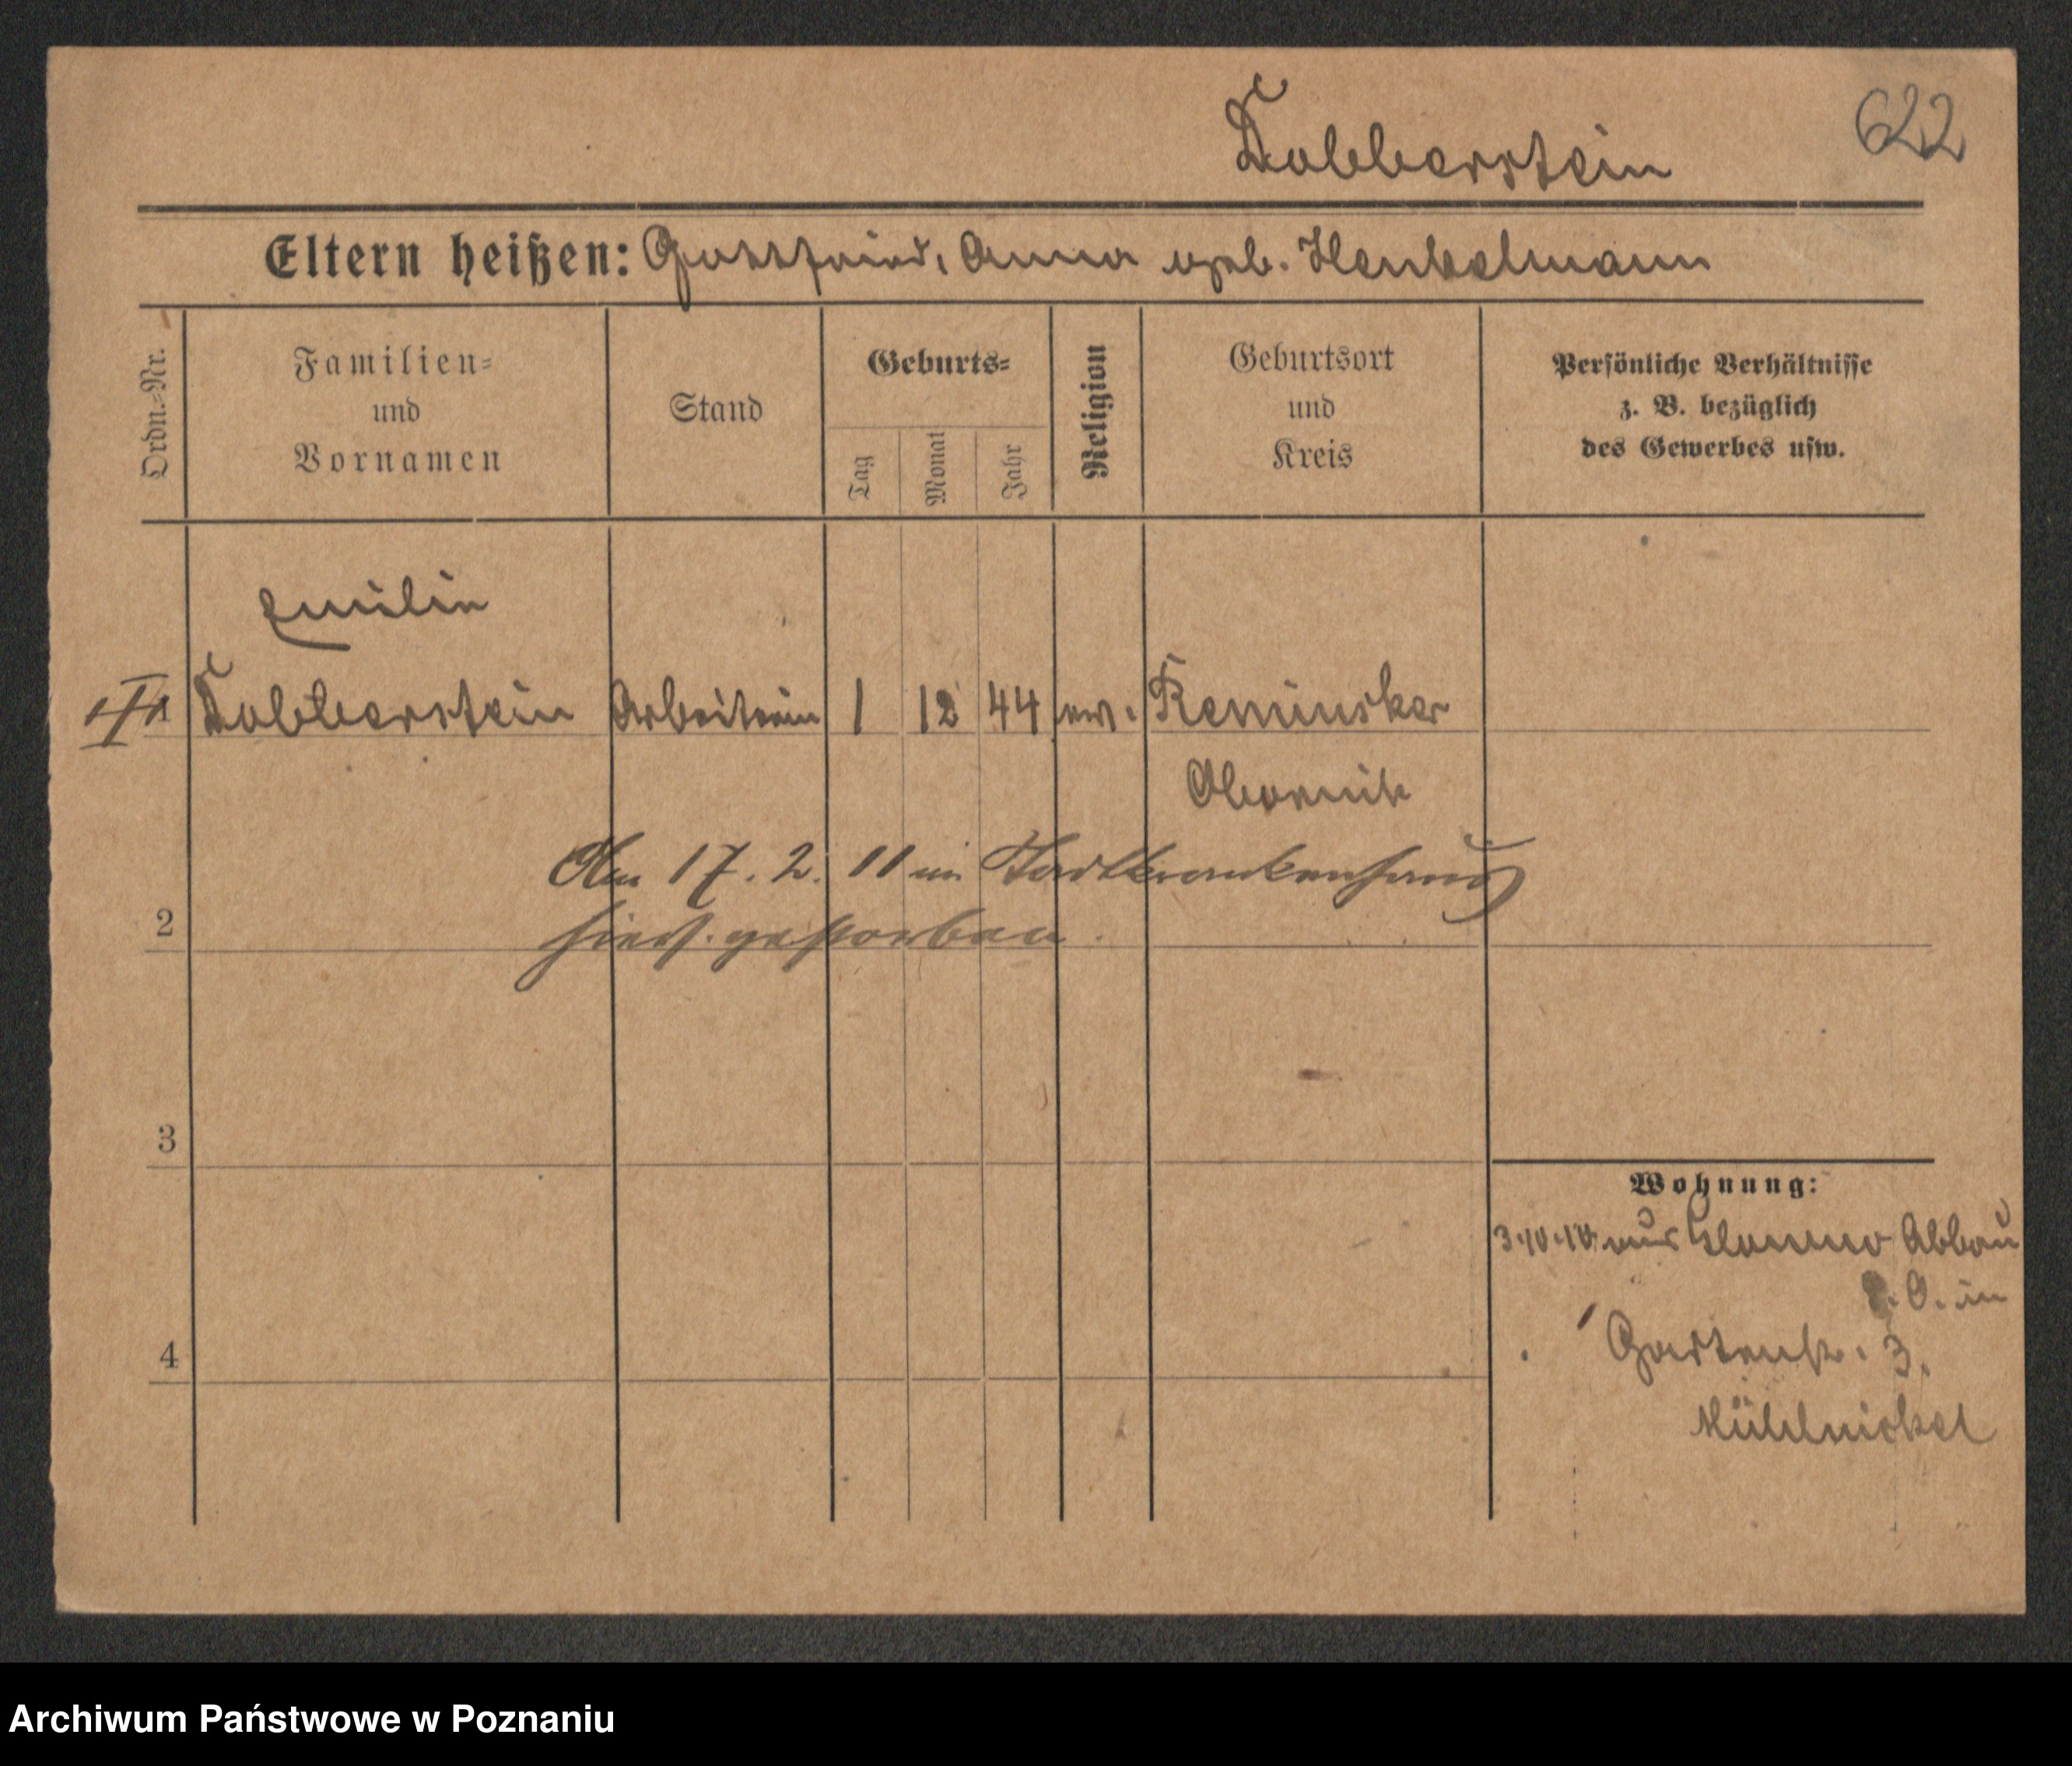 622
Dobberstein
Eltern heißen: Gottfried, Anna geb. Henkelmann
Ordn.-Nr.
Familien-
und
Vornamen
Stand
Geburts-
Tag
Monat
Jahr
Religion
Geburtsort
und
Kreis
Persönliche Verhältnisse
z. B. bezüglich
des Gewerbes usw.
Emilie
1 Dobberstein Arbeiterin 1 12 44 ev.
Obornik
Am 17. 2. 11 im Stadtkrankenhaus
2 hies. gestorben.
3
Wohnung:
3.10.10 aus Glowno Abbau
P. O. in
4 Gartenstr. 3.
Mühlnickel
Archiwum Państwowe w Poznaniu